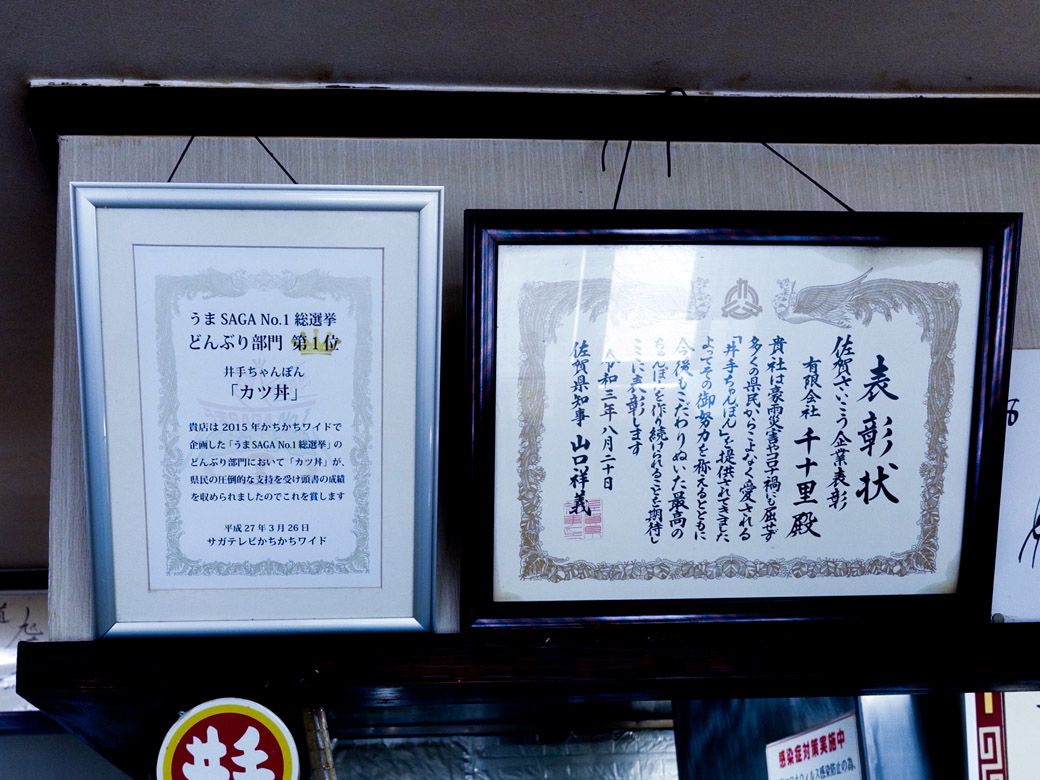 うまSAGA No.1 総選挙
どんぶり部門 第1位
井手ちゃんぽん
「カツ丼」
貴店は2015年かちかちワイドで
企画した「うまSAGA No.1総選挙」の
どんぶり部門において「カツ丼」が、
県民の圧倒的な支持を受け頭書の成績
を収められましたのでこれを賞します
平成27年3月26日
サガテレビかちかちワイド
表彰状
佐賀さいこう企業表彰
有限会社 千十里 殿
貴社は豪雨災害やコロナ禍にも屈せず
多くの県民からこよなく愛される
「井手ちゃんぽん」を提供されてきました
よってその御努力を称えるとともに
今後もこだわりぬいた最高の
ちゃんぽんを作り続けられることを期待し
ここに表彰します
令和三年八月二十日
佐賀県知事 山口祥義
井手
感染症対策実施中
ウイルス感染防止の為、